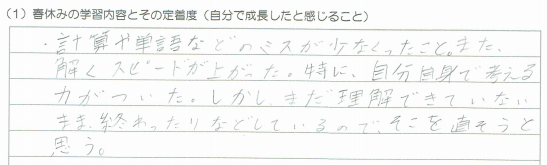 (1) 春休みの学習内容とその定着度（自分で成長したと感じること）
・計算や単語などのミスが少なくったこと。また、
解くスピードが上がった。特に、自分自身で考える
力がついた。しかし、まだ理解できていない
まま、終わったりなどしているので、そこを直そうと
思う。